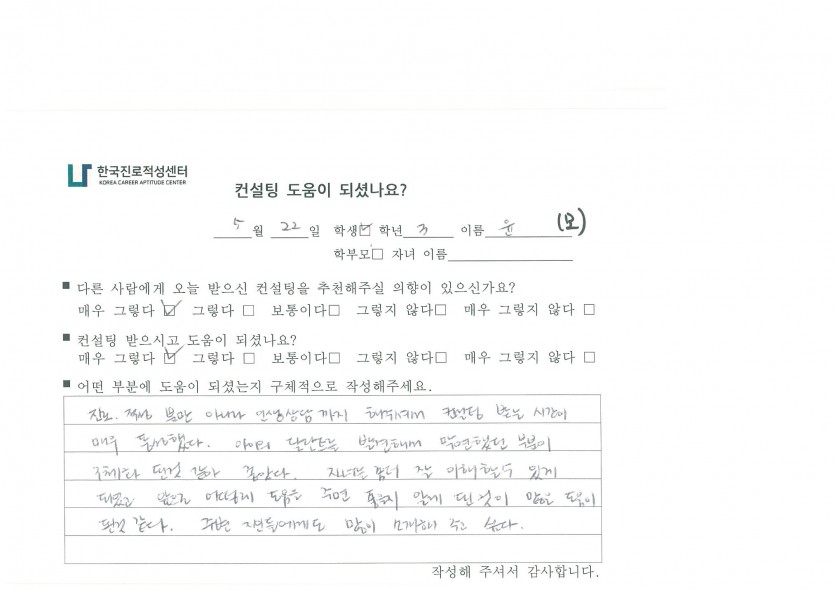 한국진로적성센터
KOREA CAREER APTITUDE CENTER
컨설팅 도움이 되셨나요?
5월 22일 학생☑ 학년 3 이름 윤 (모)
학부모□ 자녀 이름
■ 다른 사람에게 오늘 받으신 컨설팅을 추천해주실 의향이 있으신가요?
매우 그렇다 ☑ 그렇다 □ 보통이다□ 그렇지 않다□ 매우 그렇지 않다 □
■ 컨설팅 받으시고 도움이 되셨나요?
매우 그렇다 ☑ 그렇다 □ 보통이다□ 그렇지 않다□ 매우 그렇지 않다 □
■ 어떤 부분에 도움이 되셨는지 구체적으로 작성해주세요.
진로. 뿐만 아니라 인생상담까지 해주셔서 컨설팅 받는 시간이
매우 했다. 아이의 달란트를 발견해서 막연했던 부분이
구체화 된것 같아 좋았다. 자녀를 좀더 잘 이해할수 있게
되었고 앞으로 어떻게 도움을 주면 좋을지 알게 된 것이 많은 도움이
된것 같다. 주변 지인들에게도 많이 소개해 주고 싶다.
작성해 주셔서 감사합니다.